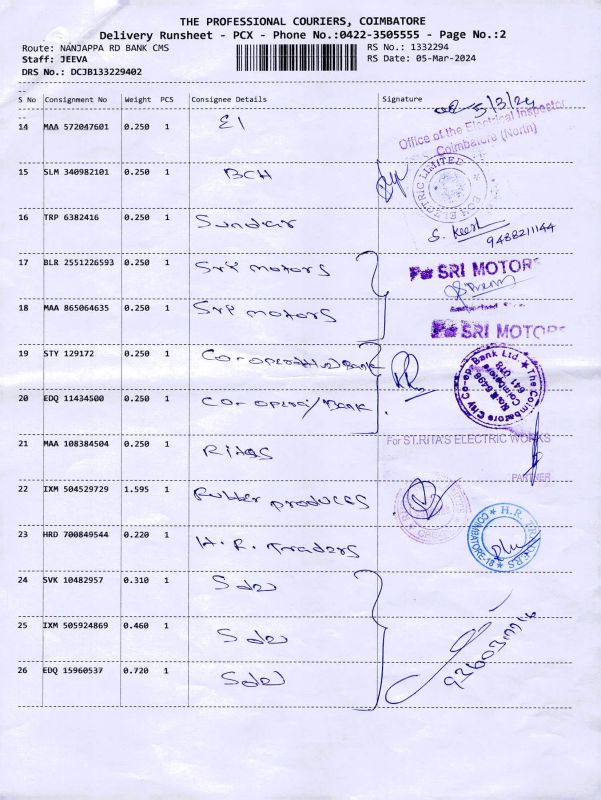 THE PROFESSIONAL COURIERS, COIMBATORE
Delivery Runsheet - PCX - Phone No.:0422-3505555 - Page No.:2
Route: NANJAPPA RD BANK CMS RS No.: 1332294
Staff: JEEVA RS Date: 05-Mar-2024
DRS No.: DCJB133229402
S No Consignment No Weight PCS Consignee Details Signature
5/3/24
14 MAA 572047601 0.250 1 EI
Office of the Electrical Inspector
Coimbatore (North)
15 SLM 340982101 0.250 1 BCH
ELECTRIC LIMITED
16 TRP 6382416 0.250 1 Sundar
9488211144
17 BLR 2551226593 0.250 1 Sri motors
For SRI MOTORS
18 MAA 865064635 0.250 1 Sri motors
For SRI MOTORS
19 STY 129172 0.250 1 Co-operative Bank
The Coimbatore City Co-ope Bank Ltd.
Coimbatore
641 018
20 EDQ 11434500 0.250 1 Co-opera/Bank
21 MAA 108384504 0.250 1 Ritas
For ST.RITA'S ELECTRIC WORKS
PARTNER
22 IXM 504529729 1.595 1 Rubber products
23 HRD 700849544 0.220 1 H.R. Traders
H.R. TRADERS
COIMBATORE-18
24 SVK 10482957 0.310 1
25 IXM 505924869 0.460 1
26 EDQ 15960537 0.720 1